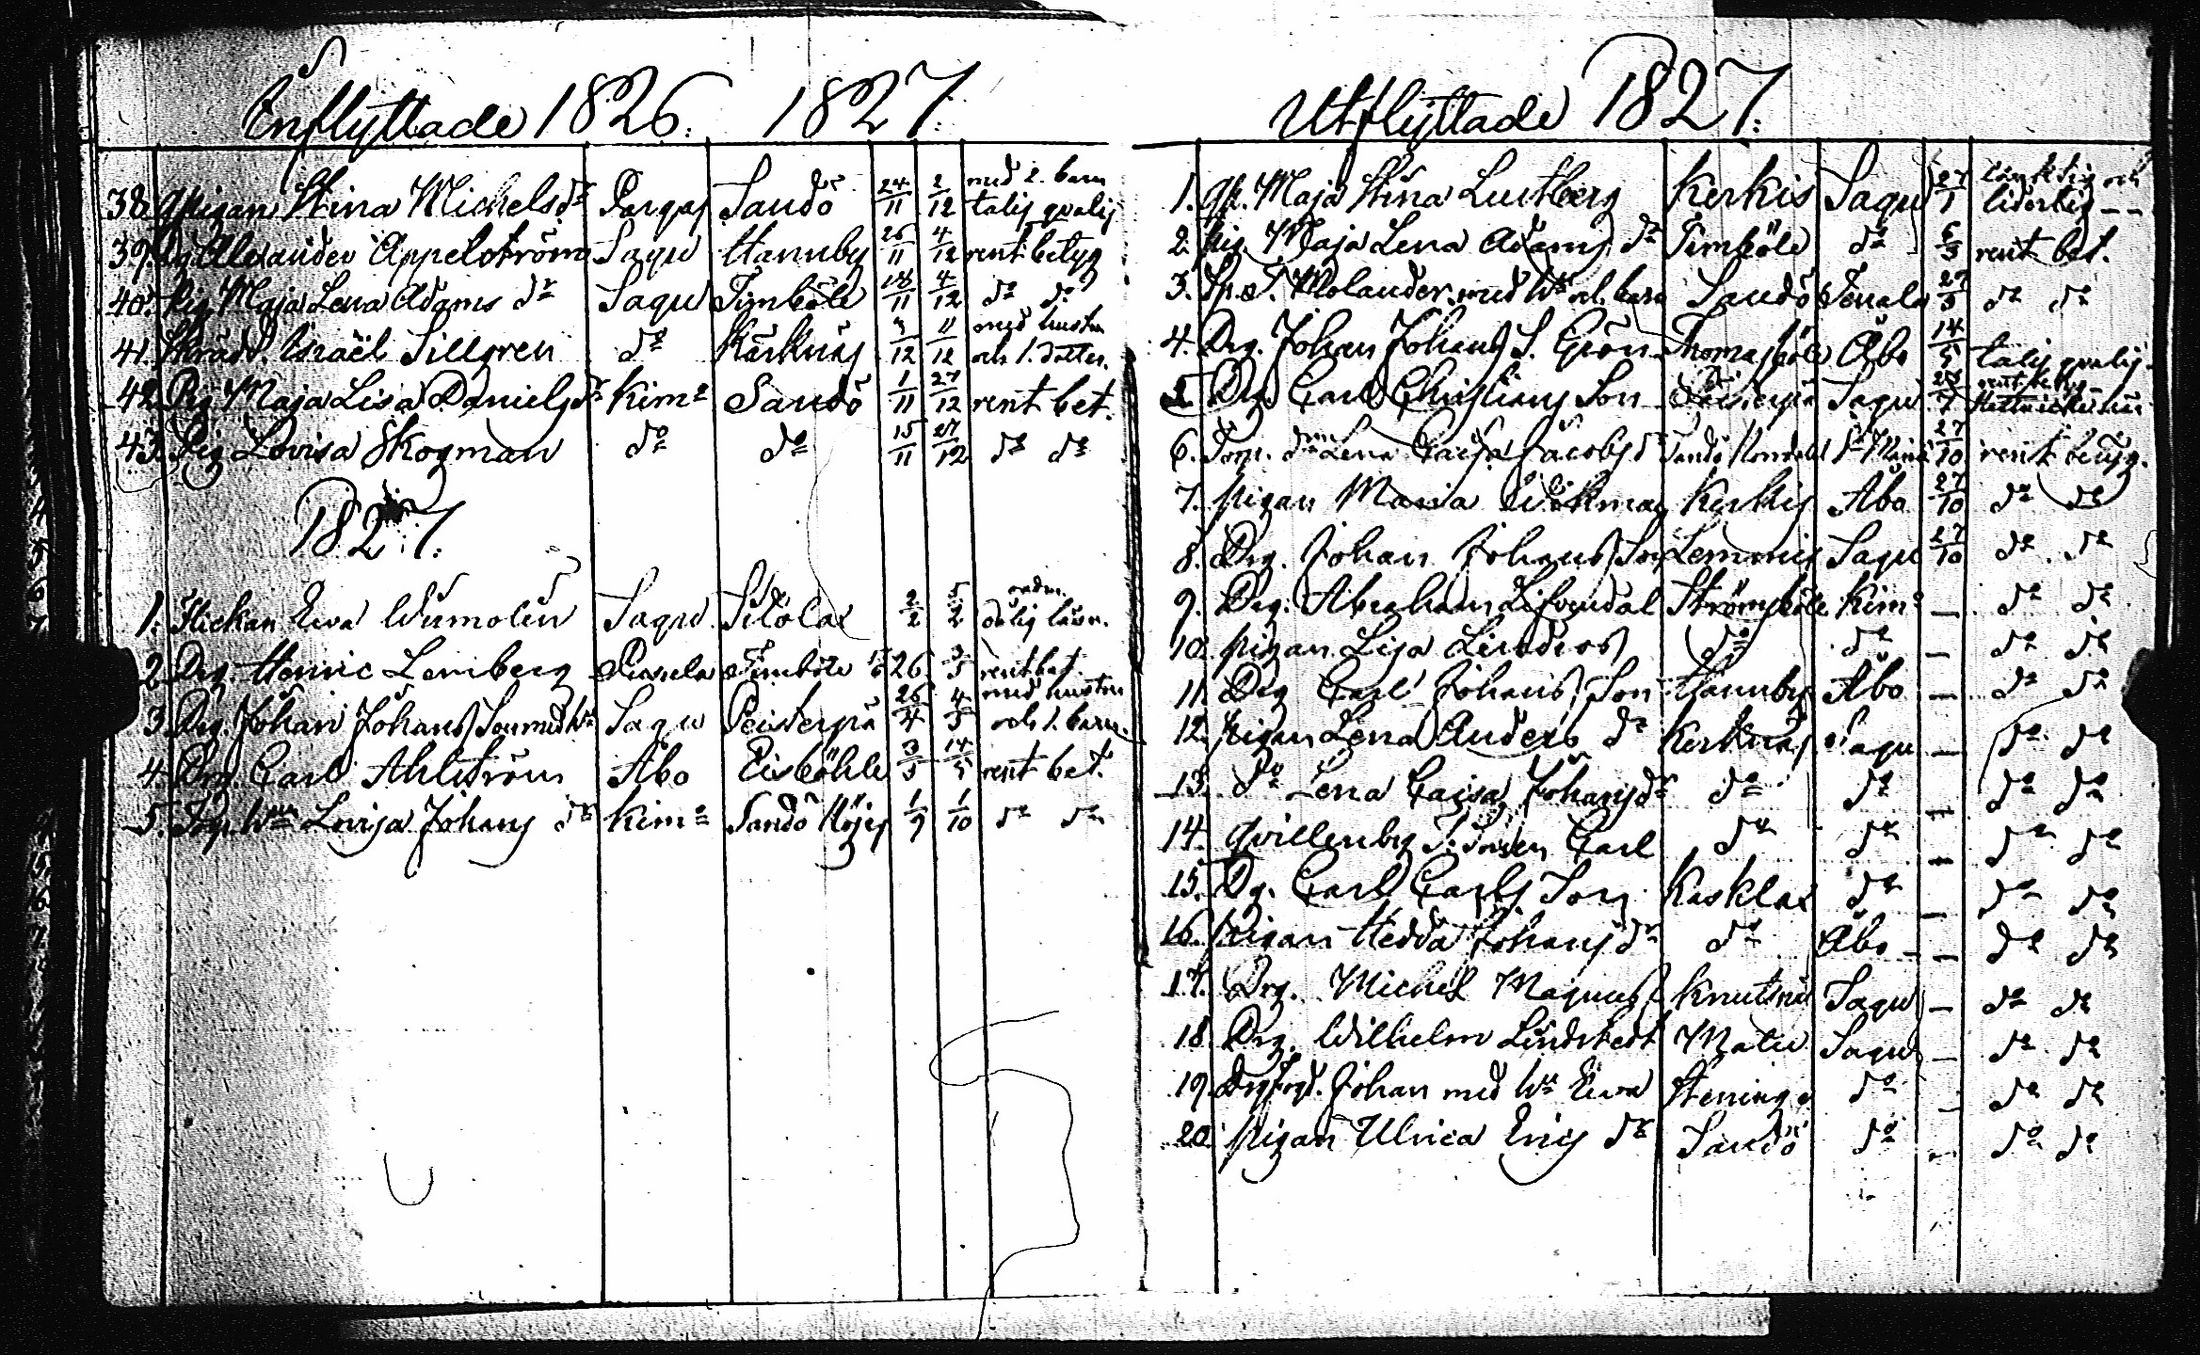 Inflyttade 1826. 1827.
38. Qpigan Stina Michels dr Pargas Sandö 24/11 2/12 med 2. barn
talig qvalis
39. Dg Alexander Appelström Sagu Hannby 26/11 4/12 rent betyg
40. Pig Maja Lena Adams dr Sagu Timböle 18/11 4/12 do do
41. Skrädd. Israël Sillgren do Kärknäs 4/12 11/12 med hustru
och 1. dotter.
42. Pig Maja Lisa Daniels dr Kimo Sandö 1/11 27/12 rent bet.
43. Pig Lovisa Skogman do do 15/11 27/12 do do
1827.
1. Flickan Ewa Wumolin Sagu Sitolax 2/2 5/2
dålig läsn.
2. Drg. Henric Lemberg Timböle 26 3/5 rent bet
3. Drg. Johan Johans Son med hu Sagu Peisterpä 26/4 4/5 med hustru
och 1. barn.
4. Drg. Carl Ahlström Åbo Eisböhle 3/5 14/5 rent bet.
5. hu Lovisa Johans dr Kimo Sandö Höijs 1/9 1/10 do do
Utflyttade 1827.
1. Qp. Maja Stina Lustberg Kerkis Sagu 27/1 och
liderlig
2. Pig. Maja Lena Adams dr Timböle do 5/3 rent bet.
3. Sp. J. Molander med hu och barn Sandö Tenala 27/5 do do
4. Drg. Johan Johans S. Grön Thomasböle Åbo 14/5 talig qvalis.
5. Drg. Carl Christians Son Peisterpä Sagu 7 rent betyg
6. Lena Caisa Jacobs dr Sandö 27/10 rent betyg.
7. Pigan Maria Wikman Kerkis Åbo 27/10 do do
8. Drg. Johan Johans Son Lemnis Sagu 27/10 do do
9. Drg. Abraham Lifvendal Strömsböle Kimo — do do
10. Pigan Lisa Linderos do do — do do
11. Drg Carl Johans Son Hannby Åbo — do do
12. Pigan Lena Anders dr Kerknäs Sagu — do do
13. do Lena Caisa Johans dr do do — do do
14. Qvillenby S: Carl do do — do do
15. Dg. Carl Carls Son Kasklax do — do do
16. Pigan Hedda Johans dr do Åbo — do do
17. Drg. Michel Magnuss Knutsnäs Sagu — do do
18. Drg. Wilhelm Lindstedt Matu Sagu — do do
19. Johan med hu Ewa Heninge do — do do
20. Pigan Ulrica Erics dr Sandö do — do do